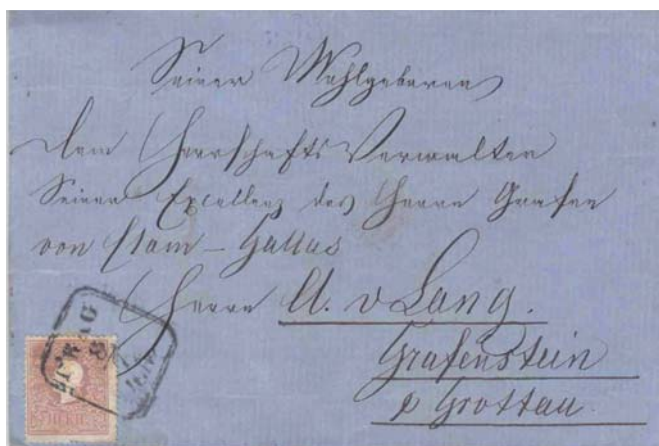 Seiner Wohlgeboren
dem Herrschafts Verwalter
Seiner Excellenz des Herrn Grafen
von Clam-Gallas
Herrn A. v Lang.
Grafenstein
Grottau.